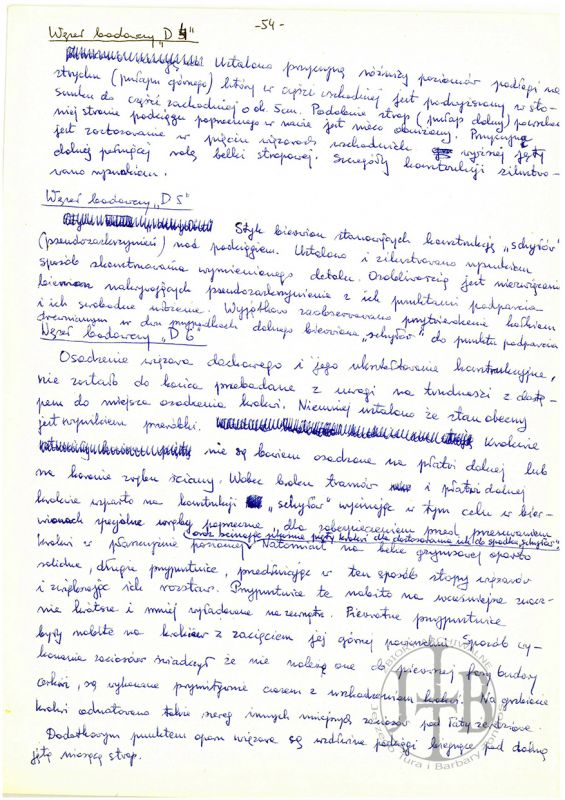 -54-
Węzeł badawczy „D 4"
Ustalono przyczynę różnicy poziomów podłogi na
strychu (pułapu górnego) który w części wschodniej jest podwyższony w sto-
sunku do części zachodniej o ok. 5cm. Podobnie strop (pułap dolny) po wschod-
niej stronie podciągu poprzecznego w nawie jest nieco obniżony. Przyczyną
jest zastosowanie w pięciu więzarach wschodnich wyższej jętki
dolnej pełniącej rolę belki stropowej. Szczegóły konstrukcji zilustro-
wano rysunkiem.
Węzeł badawczy „D 5"
Styk bierwion stanowiących konstrukcję „schyłów"
(pseudozaskrzynień) nad podciągiem. Ustalono i zilustrowano rysunkiem
sposób skonstruowania wymienionego detalu. Osobliwością jest niezwiązanie
bierwion nakrywających pseudozaskrzynienia z ich punktami podparcia
i ich swobodne ułożenie. Wyjątkowo zaobserwowano przytwierdzenie kołkiem
drewnianym w dwu przypadkach dolnego bierwiona „schyłów" do punktu podparcia
Węzeł badawczy „D 6"
Osadzenie więzara dachowego i jego ukształtowanie konstrukcyjne,
nie zostało do końca przebadane z uwagi na trudności z dostę-
pem do miejsca osadzenia krokwi. Niemniej ustalono że stan obecny
jest wynikiem przeróbki. Krokwie
nie są bowiem osadzone na płatwi dolnej lub
na koronie zrębu ściany. Wobec braku tramów i płatwi dolnej
krokwie wsparto na konstrukcji „schyłów" wycinając w tym celu w bier-
wionach specjalne wręby poprzeczne dla zabezpieczeniem przed przesuwaniem
oraz ścinając ukośnie pięty krokwi dla dostosowania ich do spadku „schyłów"
krokwi w płaszczyźnie poziomej. Natomiast na belce gzymsowej oparto
solidne, długie przypustnice, przedłużając w ten sposób stopy więzarów
i zwiększając ich rozstaw. Przypustnice te nabito na wcześniejsze znacz-
nie krótsze i mniej wysadzone na zewnątrz. Pierwotne przypustnice
były nabite na krokiew z zacięciem jej górnej powierzchni. Sposób wy-
konania zaciosów świadczy że nie należą one do pierwszej fazy budowy
cerkwi, są wykonane prymitywnie czasem z uszkodzeniem krokwi. Na grzbiecie
krokwi odnotowano także szereg innych mniejszych zaciosów pod łaty zerdziowe.
Dodatkowym punktem oparu więzara są wzdłużne podciągi biegnące pod dolną
jętą niosącą strop.